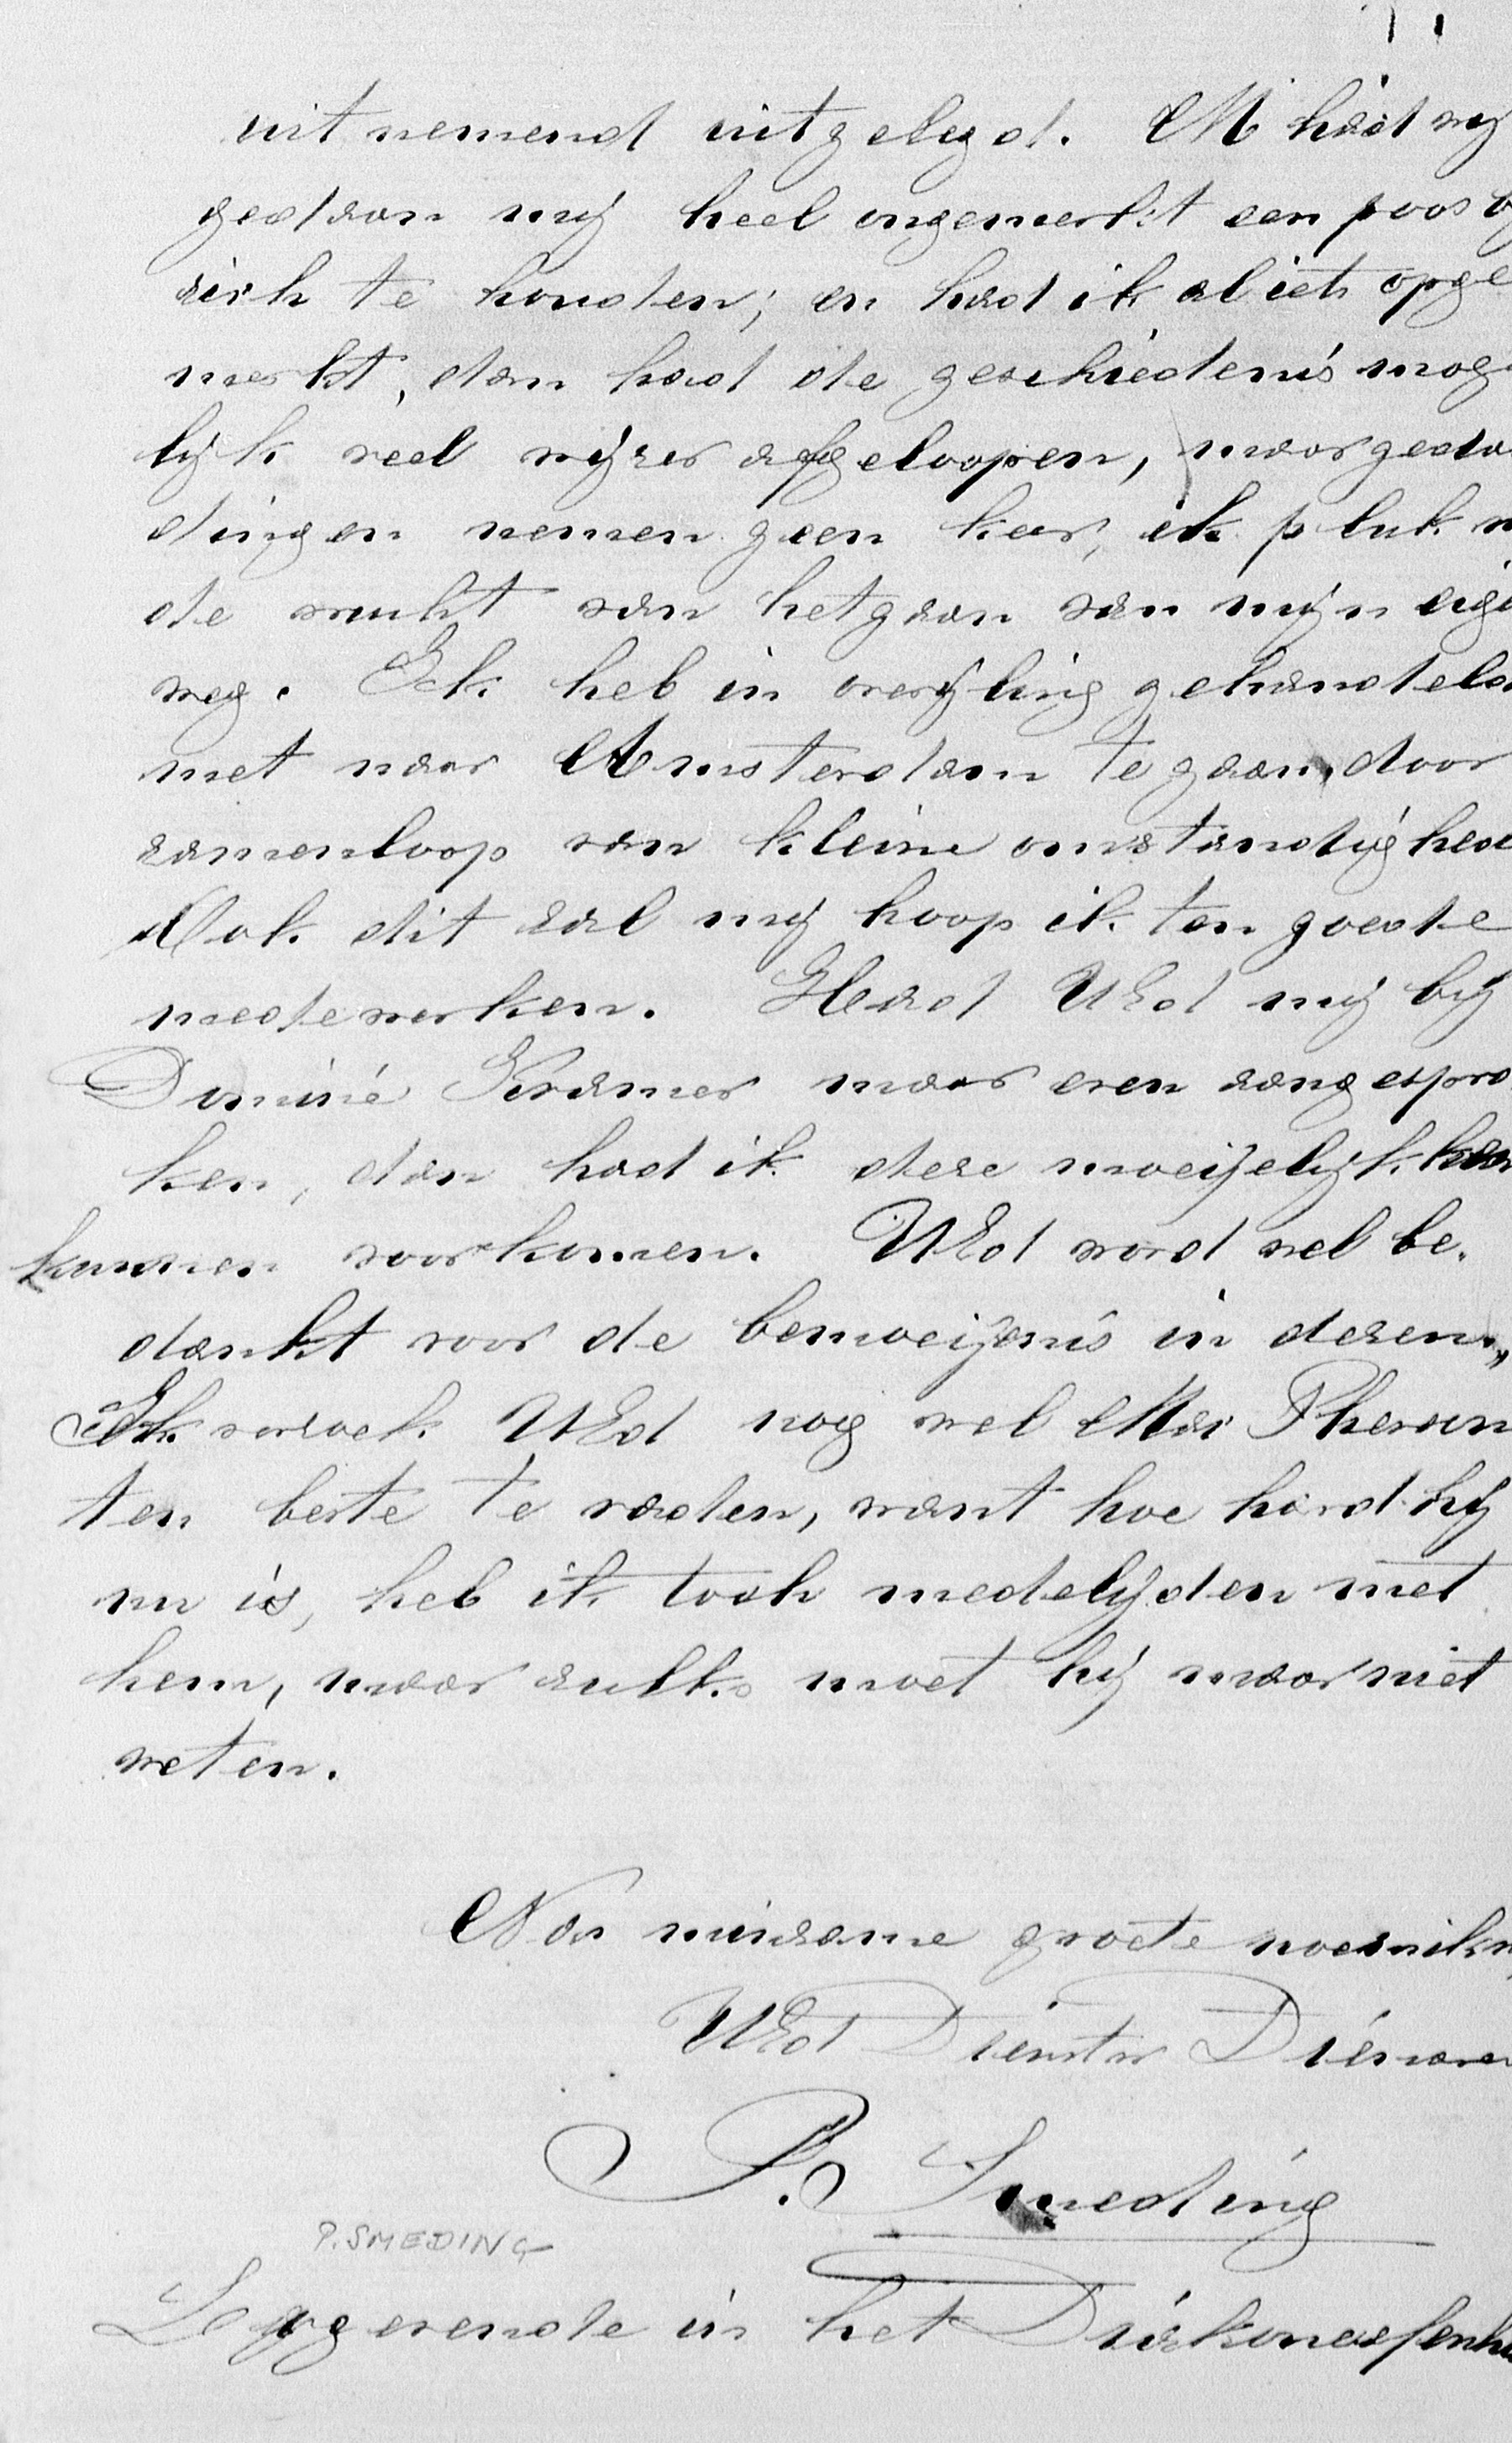 uitnemend uitgelegd. M had wij
gedaan mij heel ongemerkt een poos op
zich te houden; en had ik al iets opge
merkt, dan had de geschiedenis moge
lijk veel wijzer afgeloopen, maar geda
dingen nemen geen keer, ik pluk n
de vrucht van het gaan van mijn eige
weg. Ick heb in overijling gehandeld
met naar Amsterdam te gaan, door
zamenloop van kleine omstandighede
Ook dit zal mij hoop ik ten goede
medewerken. Had UEd mij bij
Dominé Kramer maar even aangespro
ken, dan had ik deze moeijelijk
kunnen voorkomen. UEd word wel be.
dankt voor de bemoeijenis in dezen,,
Ik verzoek UEd nog wel
ten beste te raden, want hoe hard hij
nu is, heb ik toch medelijden met
hem, maar zulks moet hij maar niet
weten.
Na minzame groete
UEd Dienstw Dienaar
P. Smeding
P. SMEDING
Logerende in het Diakonessenhu